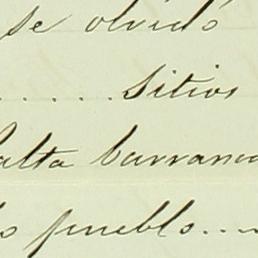 se olvidó
......Sitios
falta barranca
pueblo...